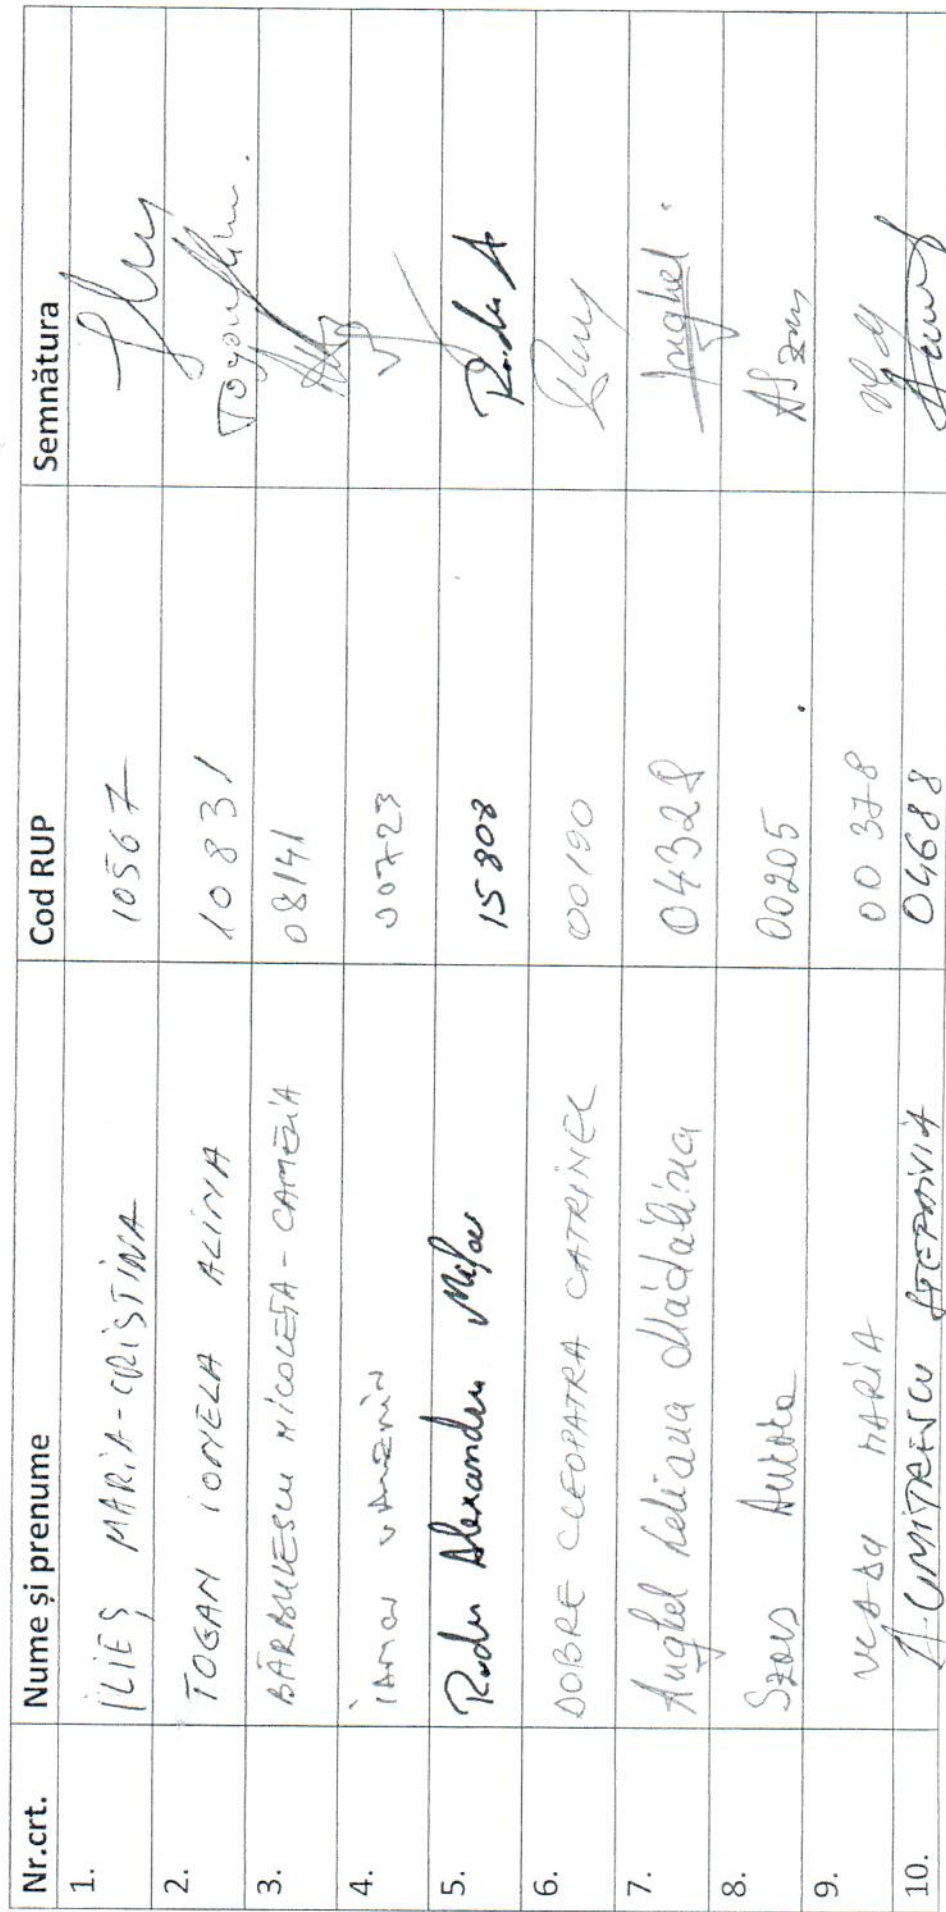 Nr.crt. Nume și prenume Cod RUP Semnătura
1. ILIEȘ MARIA-CRISTINA 10567
2. TOGAN IONELA ALINA 10831
3. BĂRBULESCU NICOLETA-CAMELIA 08141
4. 00723
5. Radu Alexandru 15808 Radu A
6. DOBRE CLEOPATRA CATRINEL 00190
7. Anghel Liliana Mădălina 04328 Anghel
8. Aurora 00205
9. VLADY MARIA 00378
10. DUMITRESCU 04688